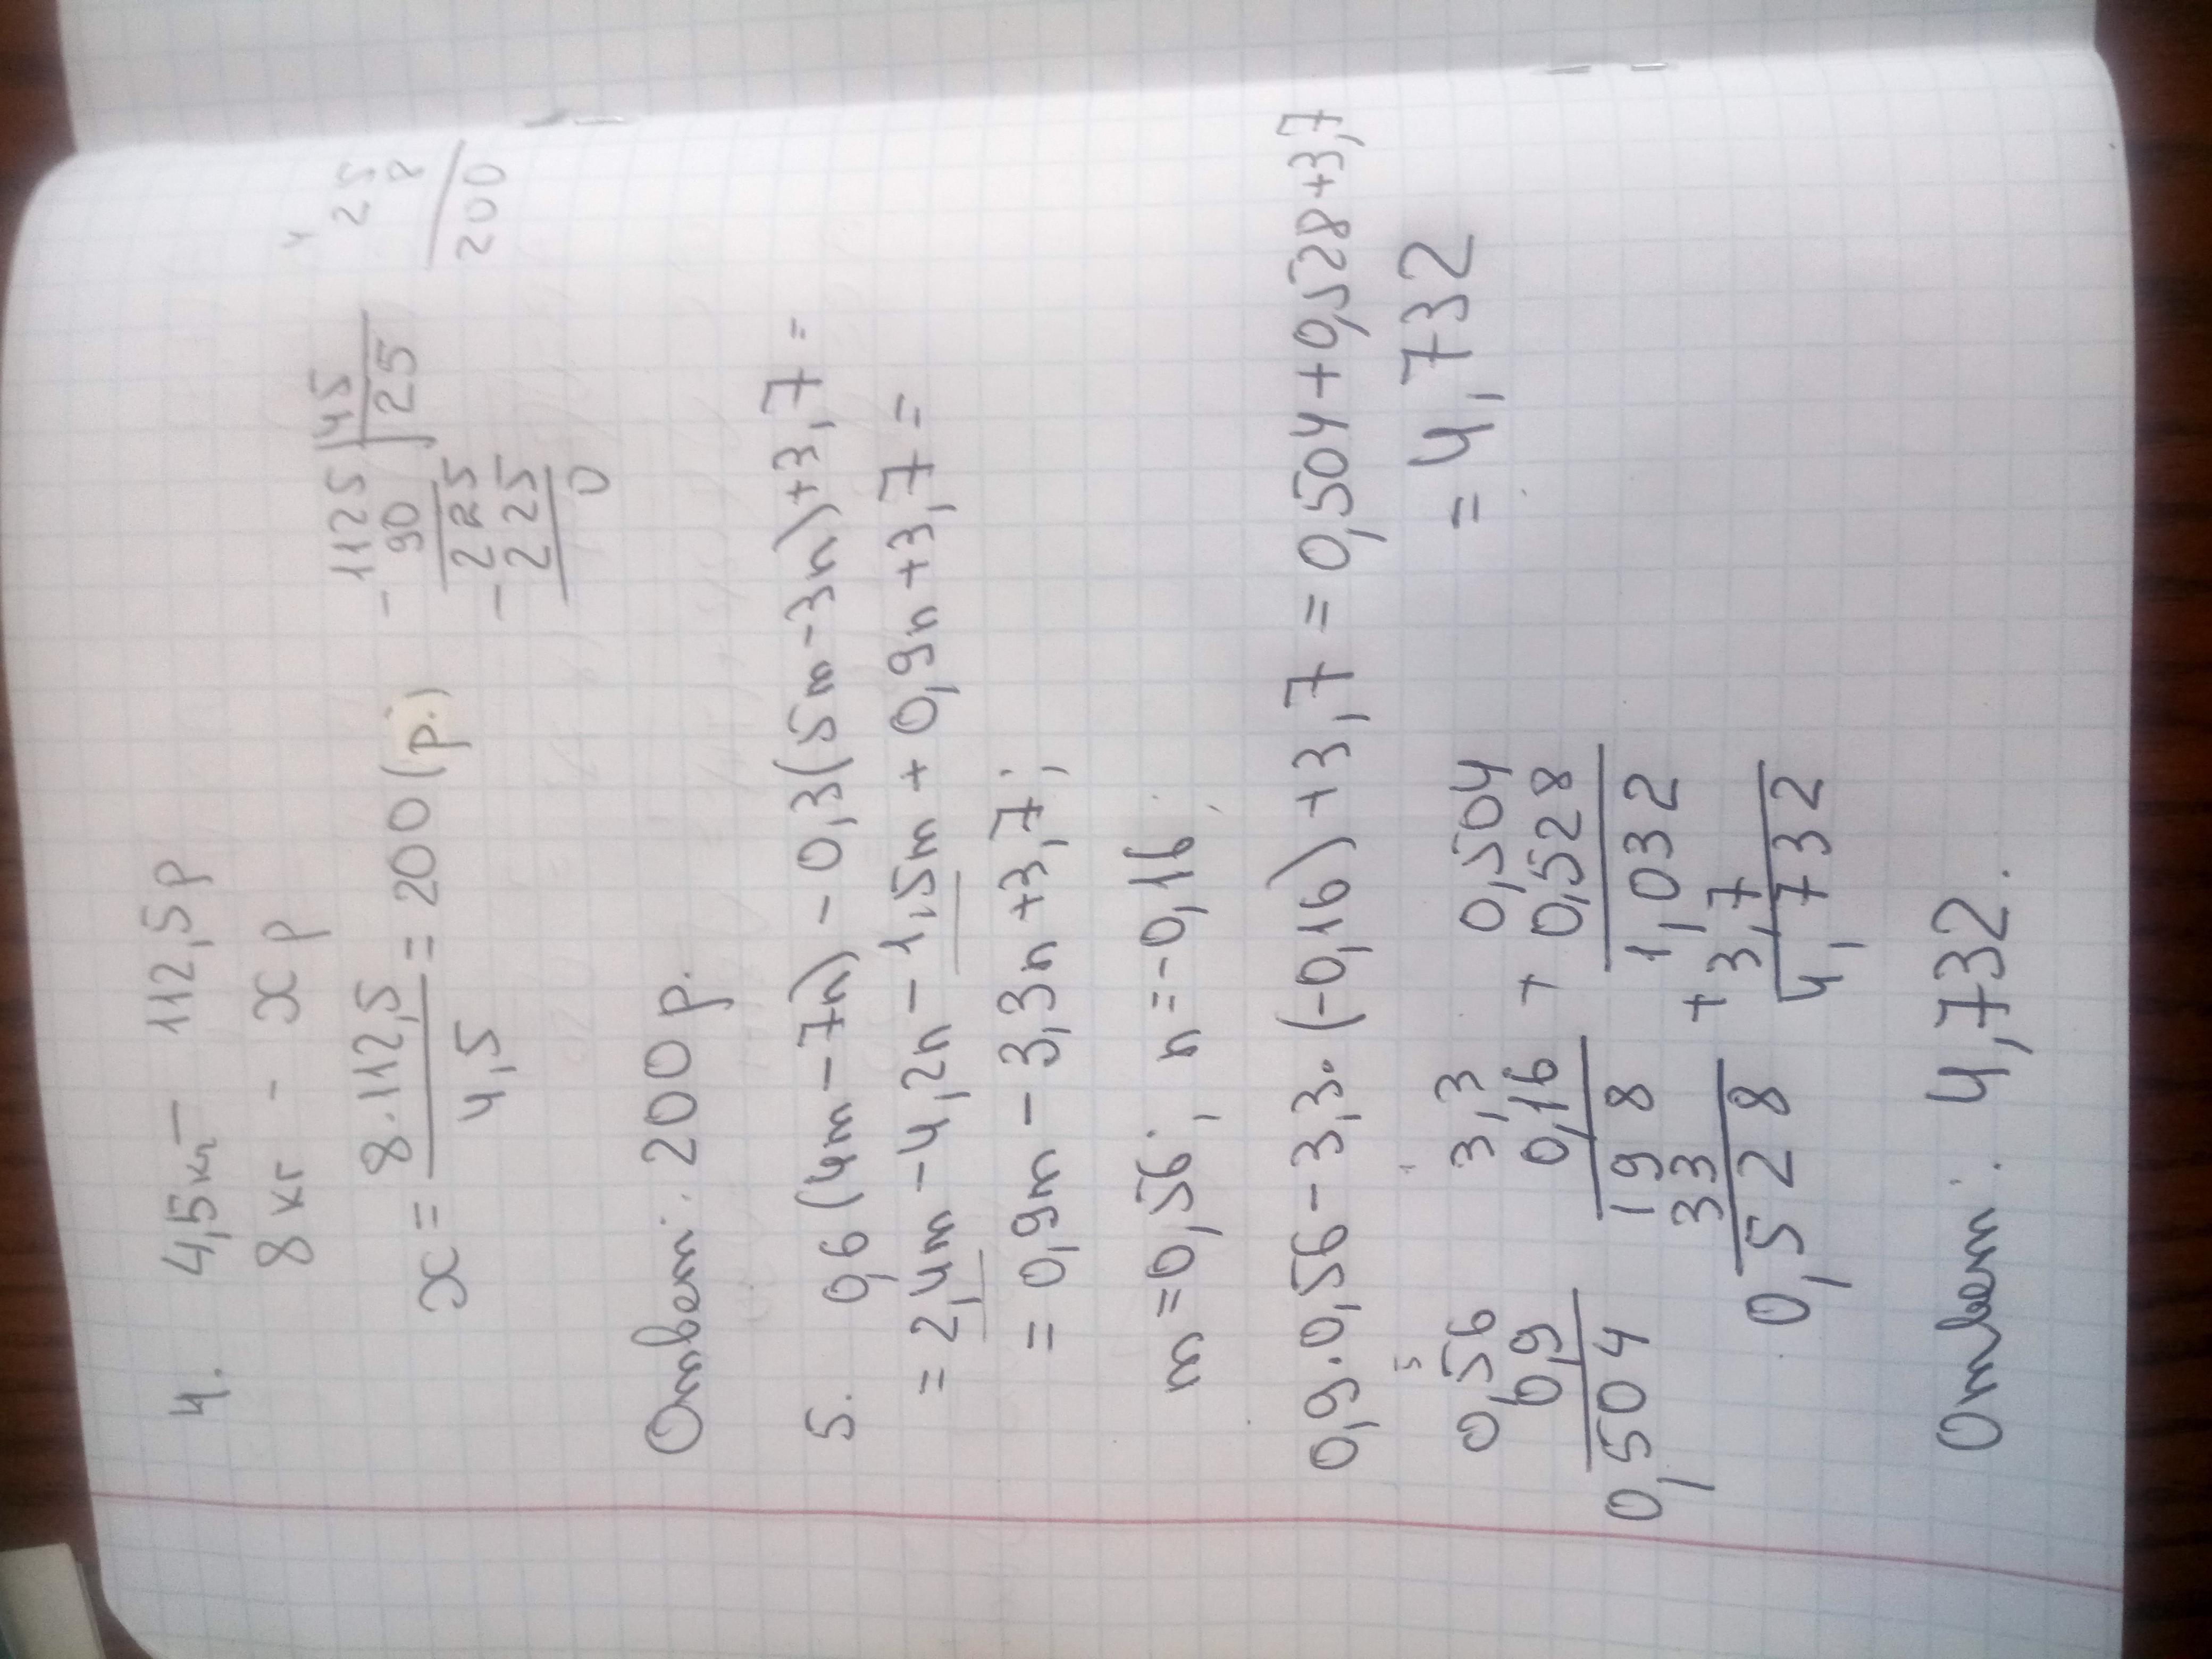 4. 4,5кг – 112,5р
8 кг - x р
x = 8·112,5 / 4,5 = 200 (р.)
- 1125 | 45
90 | 25
- 225
225
0
4
25
8
200
Ответ: 200 р.
5. 0,6(4m-7n)-0,3(5m-3n)+3,7=
=2,4m-4,2n-1,5m+0,9n+3,7=
=0,9m-3,3n+3,7;
m=0,56; n=-0,16
0,9·0,56-3,3·(-0,16)+3,7=0,504+0,528+3,7
=4,732
5
0,56
0,9
0,504
3,3
0,16
198
33
0,528
0,504
+ 0,528
1,032
+ 3,7
4,732
Ответ: 4,732.